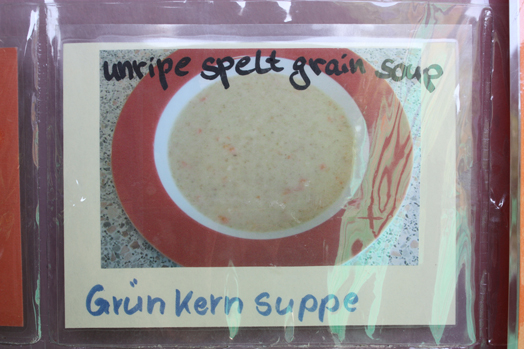 unripe spelt grain soup
Grün Kern suppe